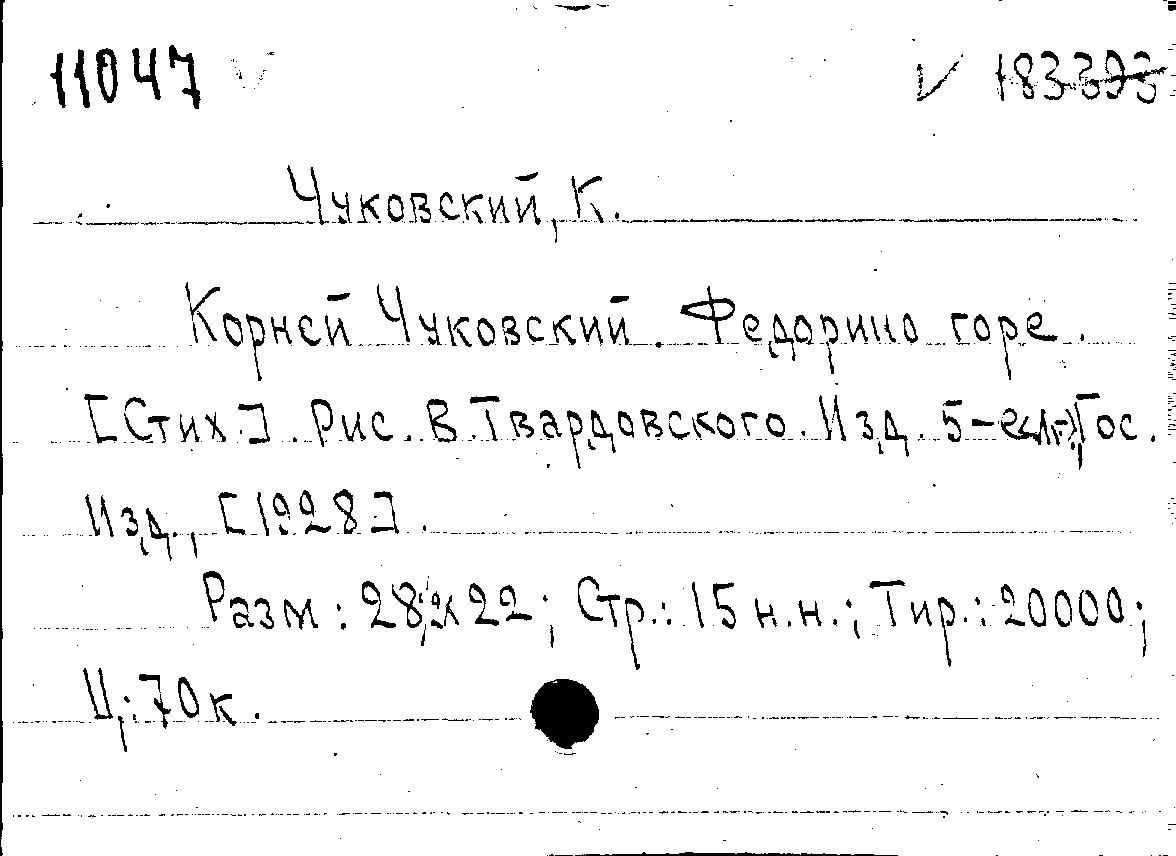 11047 V V 183393
Чуковский, К.
Корней Чуковский. Федорино горе.
[Стих.]. Рис. В. Твардовского. Изд. 5-е Гос.
Изд., [1928].
Разм: 28 x 22; Стр.: 15 н.н.; Тир.: 20000;
Ц.: 70 к.